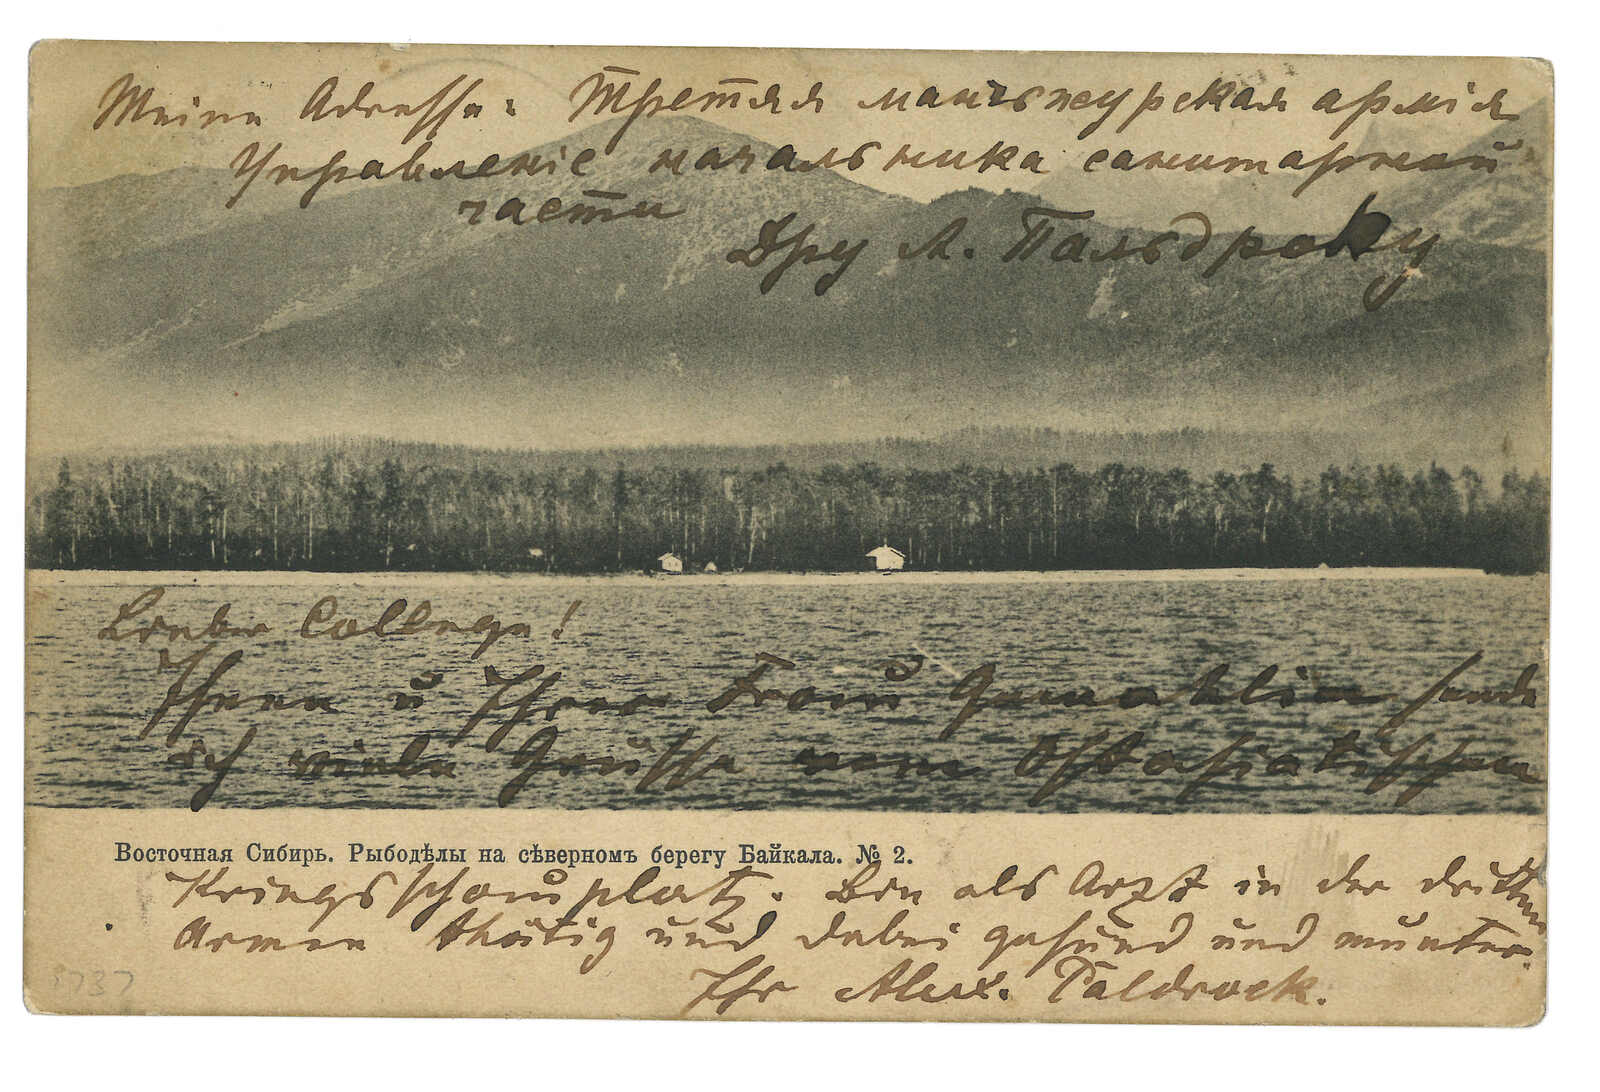 Meine Adresse: Третяя маньчжурская армія
Управленіе начальника санитарной
части
Дру А. Пальдроку
Lieber College!
Ihnen u Ihrer Frau Gemahlin sende
ich viele Grüsse vom Ostasiatischen
Восточная Сибирь. Рыбодѣлы на сѣверномъ берегу Байкала. № 2.
Kriegsschauplatz. Bin als Arzt in der dritten
Armee thätig und dabei gesund und munter.
Ihr Alex. Paldrock.
3737